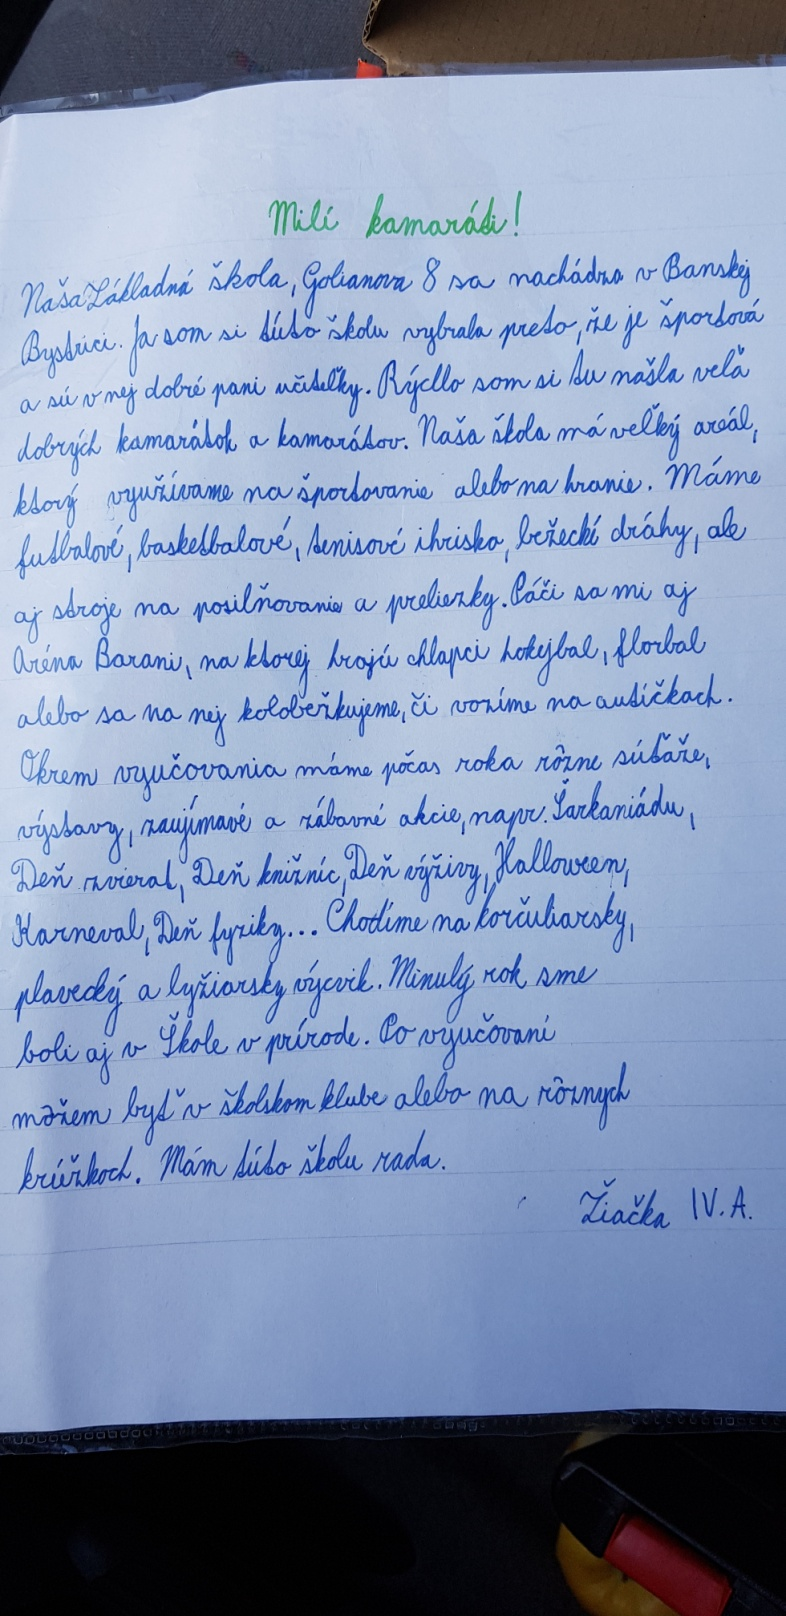 Milí kamaráti!
Naša Základná škola, Golianova 8 sa nachádza v Banskej
Bystrici. Ja som si túto školu vybrala preto, že je športová
a sú v nej dobré pani učiteľky. Rýchlo som si tu našla veľa
dobrých kamarátok a kamarátov. Naša škola má veľký areál,
ktorý využívame na športovanie alebo na hranie. Máme
futbalové, basketbalové, tenisové ihrisko, bežecké dráhy, ale
aj stroje na posilňovanie a preliezky. Páči sa mi aj
Aréna Barani, na ktorej hrajú chlapci hokejbal, florbal
alebo sa na nej kolobežkujeme, či vozíme na autíčkach.
Okrem vyučovania máme počas roka rôzne súťaže,
výstavy, zaujímavé a zábavné akcie, napr. Šarkaniádu,
Deň zvierat, Deň knižníc, Deň výživy, Halloween,
Karneval, Deň fyziky... Chodíme na korčuliarsky,
plavecký a lyžiarsky výcvik. Minulý rok sme
boli aj v Škole v prírode. Po vyučovaní
môžem byť v školskom klube alebo na rôznych
krúžkoch. Mám túto školu rada.
Žiačka IV. A.